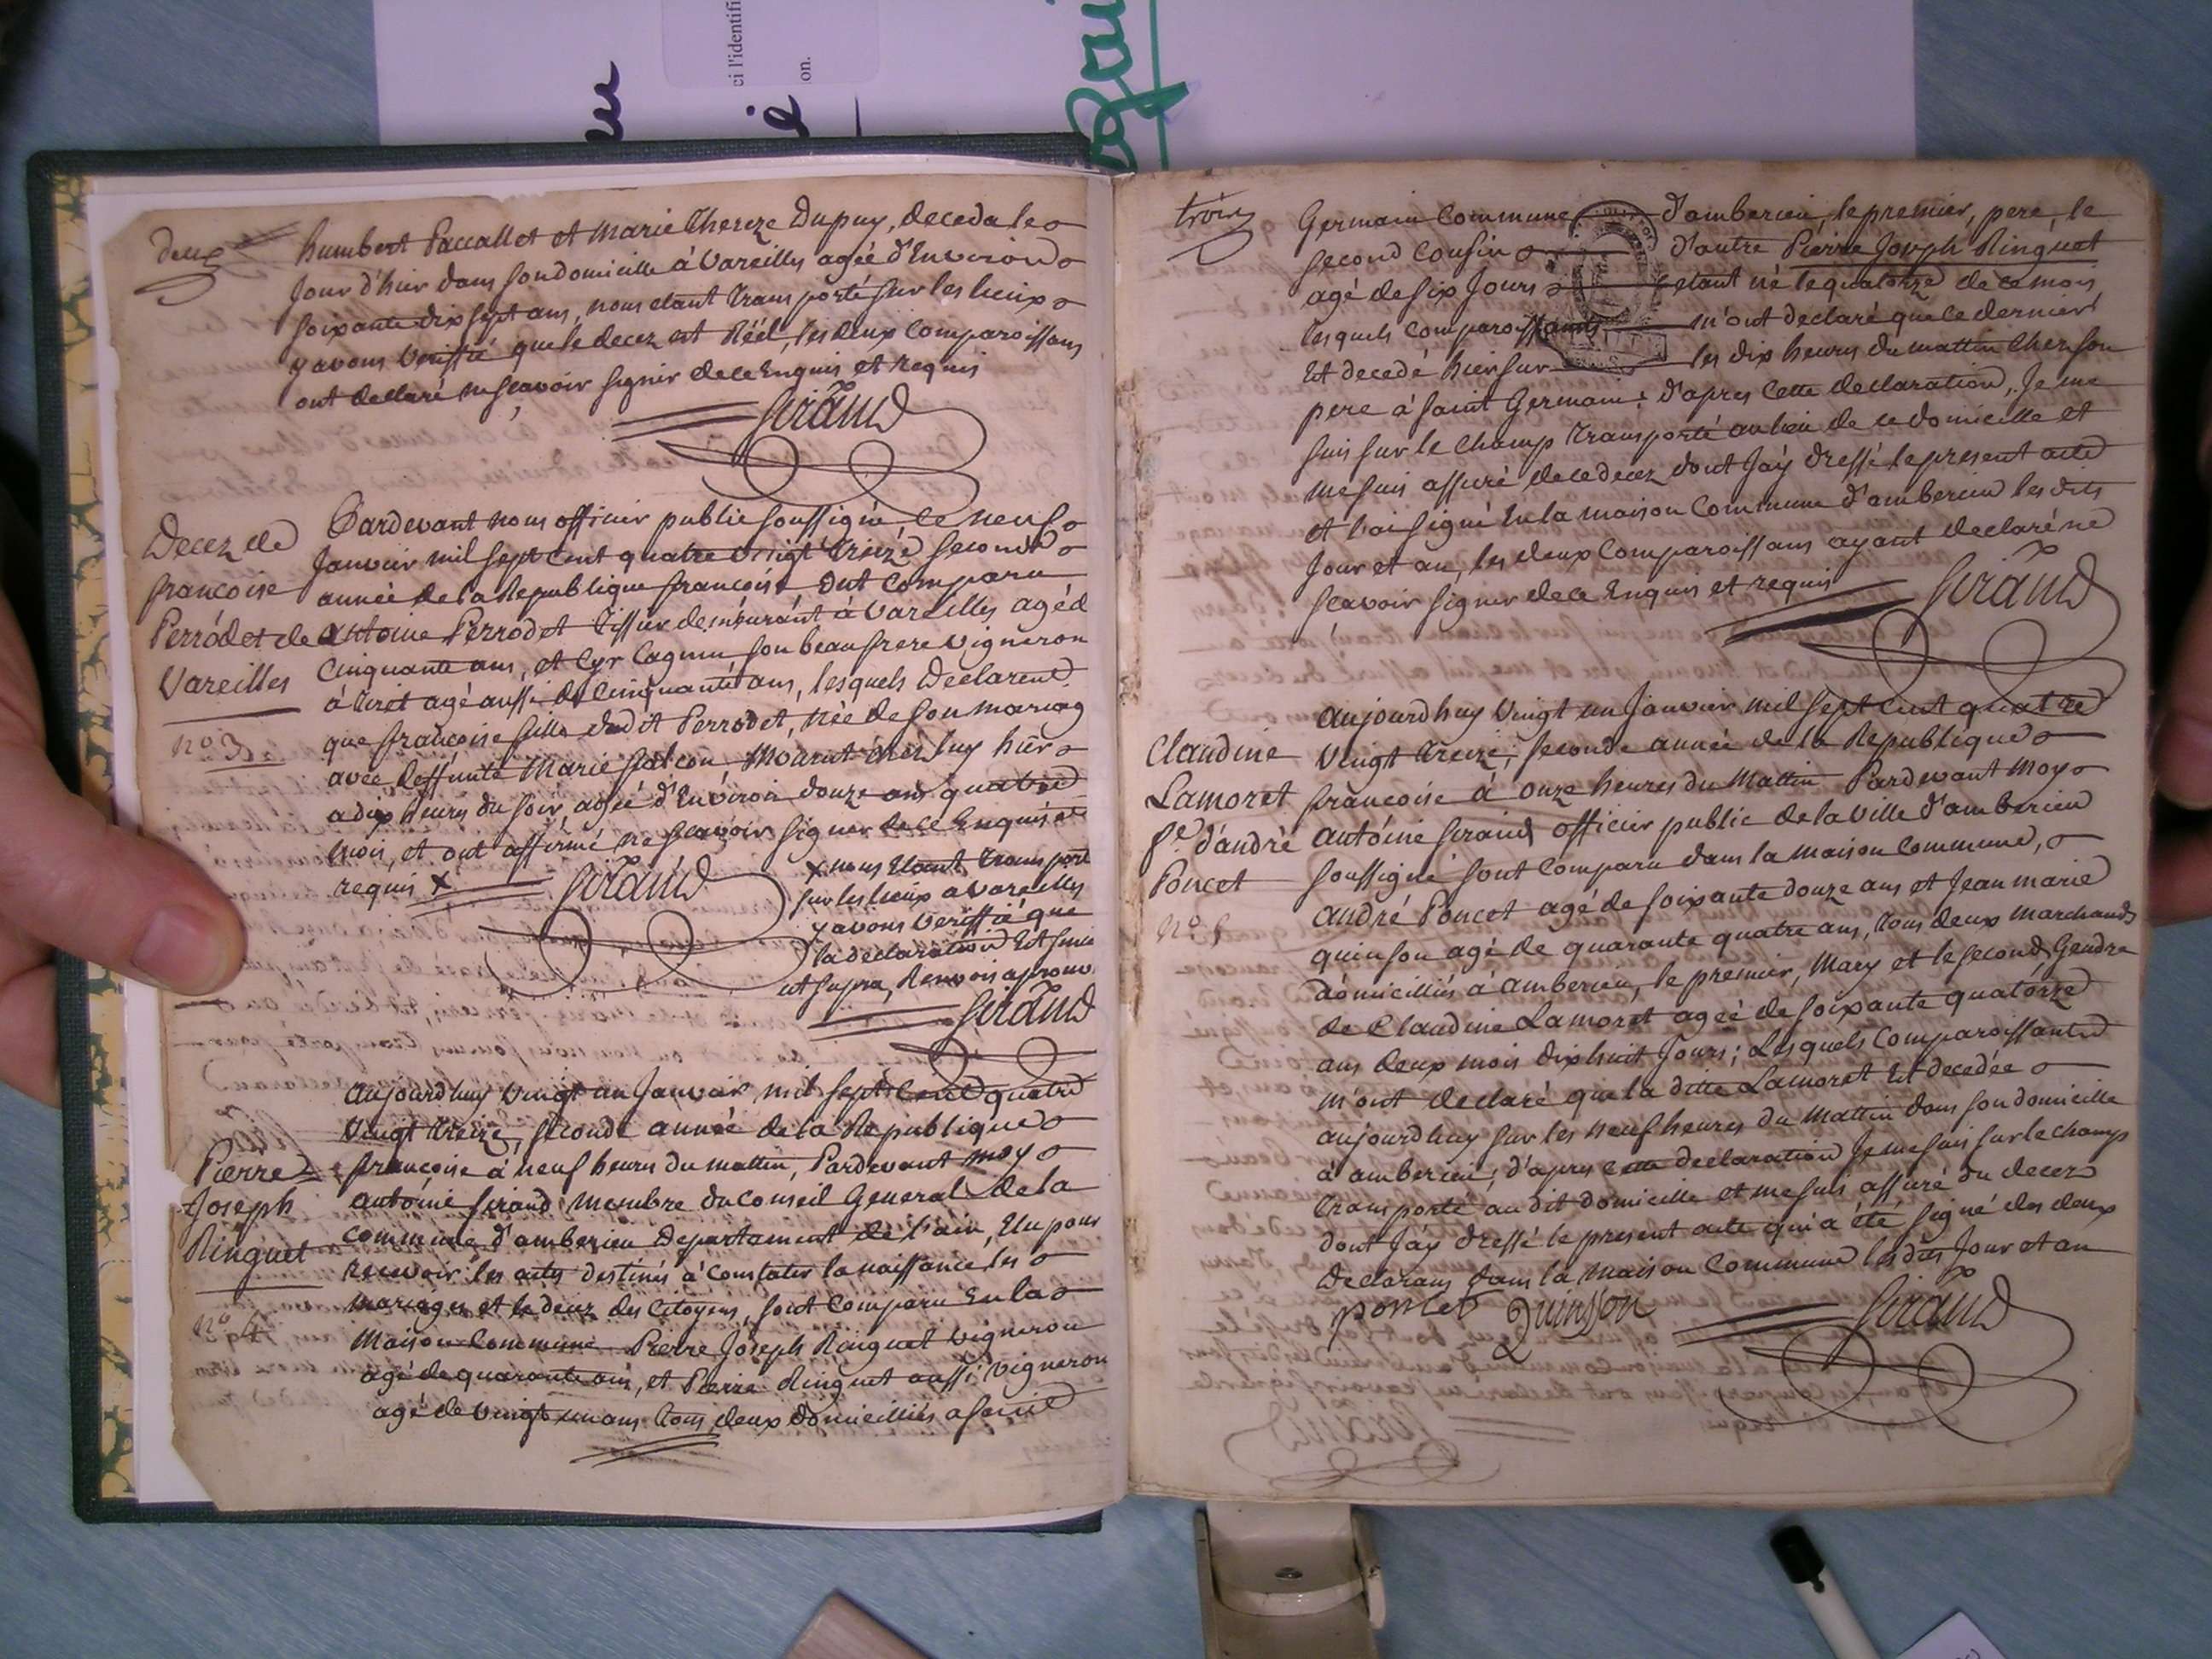 ci l'identifi
on.
deux
humbert Paccallet et marie Thereze Dupuy, deceda le
jour d'hier dans son domicille à Vareilles agée d'Environ
soixante dix sept ans, nous etant transporté sur les lieux
y avons veriffié que le decez est Réel, les deux comparoissans
ont declaré ne sçavoir signer de ce Enquis et requis
Siraud
Decez de
francoise
Perrodet de
Vareilles
nº 3
Pardevant nous officier public soussigné, ce neuf
Janvier mil sept cent quatre vingt treize seconde
année de la Republique françoise ont comparu
antoine Perrodet Tissier demeurant à Vareilles agé de
cinquante ans, et Cyr Cagnin son beaufrere vigneron
à Tiret agé aussi de cinquante ans, lesquels Declarent
que francoise fille dudit Perrodet, née de son mariag
avec deffunte Marie falcon mourut chés luy hier
a dix heures du soir, agée d'Environ douze ans quatre
mois, et ont affirmé ne scavoir signer de ce Enquis et
requis x
Siraud
x nous etant transporté
sur les lieux a Vareilles
y avons veriffié que
la declaration est sincere
ut supra, Renvois approuvé
Siraud
Pierre
Joseph
Ringuet
nº 4
aujourdhuy vingt un Janvier mil sept cent quatre
vingt treize, seconde année de la Republique
françoise à neuf heures du mattin, Pardevant moy
antoine siraud membre du Conseil General de la
commune d'amberieu departement de l'ain, Elu pour
recevoir les actes destinés à constater la naissance, les
mariages et le decez des Citoyens, sont comparu En la
Maison Commune Pierre Joseph Ringuet vigneron
agé de quarante ans, et Pierre Ringuet aussi vigneron
agé de vingt un ans tous deux domiciliés a saint
trois
Germain Commune d'amberieu, le premier, pere, le
second cousin d'autre Pierre Joseph Ringuet
agé de six Jours etant né le quatorze de ce mois
lesquels comparoissants m'ont declaré que ce dernier
Est decedé hier sur les dix heures du mattin chez son
pere à saint Germain; d'apres cette declaration, Je me
suis sur le champ transporté au lieu de ce domicille et
me suis assuré de ce decez dont J'ay dressé le present acte
et l'ai signé En la maison Commune d'amberieu les dits
Jour et an, les deux Comparoissans ayant declaré ne
scavoir signer de ce Enquis et requis
Siraud
Claudine
Lamoret
fe. d'andré
Poncet
nº 5
aujourdhuy vingt un Janvier mil sept cent quatre
vingt treize, seconde année de la Republique
francoise à onze heures du mattin Pardevant moy
antoine siraud officier public de la Ville d'amberieu
soussigné sont comparu dans la maison Commune,
andré Poncet agé de soixante douze ans et Jean marie
quinson agé de quarante quatre ans, tous deux marchands
domiciliés à amberieu, le premier, Mary et le second, Gendre
de Claudine Lamoret agée de soixante quatorze
ans deux mois dix huit Jours; Lesquels Comparoissants
m'ont declaré que la ditte Lamoret Est decedée
aujourdhuy sur les neuf heures du mattin dans son domicille
à amberieu; d'apres cette declaration Je me suis sur le champ
transporté au dit domicille et me suis assuré du decez
dont J'ay dressé le present acte qui a été signé des deux
Declarans dans la maison Commune les dits Jour et an
poncet Quinson Siraud